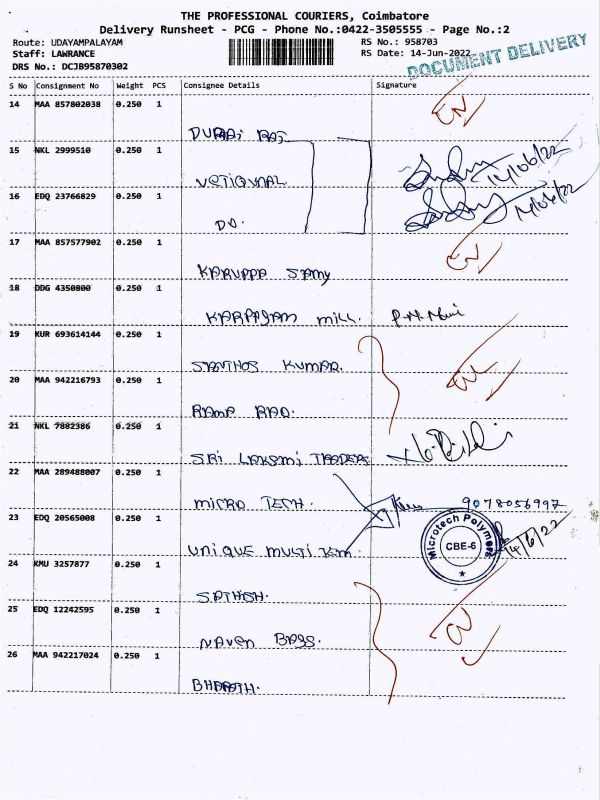 THE PROFESSIONAL COURIERS, Coimbatore
Delivery Runsheet - PCG - Phone No.:0422-3505555 - Page No.:2
Route: UDAYAMPALAYAM RS No.: 958703
Staff: LAWRANCE RS Date: 14-Jun-2022
DRS No.: DCJB95870302 DOCUMENT DELIVERY
S No Consignment No Weight PCS Consignee Details Signature
14 MAA 857802038 0.250 1
DURAI RAJ
15 NKL 2999510 0.250 1
14/06/22
16 EDQ 23766829 0.250 1
DO.
14/06/22
17 MAA 857577902 0.250 1
KARUPPA SAMY
18 DDG 4350800 0.250 1
KARPAGAM MILL. P.M.Mani
19 KUR 693614144 0.250 1
SANTHOS KUMAR.
20 MAA 942216793 0.250 1
RAMA RAO.
21 NKL 7882386 0.250 1
SRI LAKSMI TRADERS
22 MAA 289488007 0.250 1
MICRO TECH. 9078056997
23 EDQ 20565008 0.250 1
Microtech Polymers
CBE-6
14/6/22
UNIQUE MULTI KEM.
24 KMU 3257877 0.250 1
SATHISH.
25 EDQ 12242595 0.250 1
NAVEN BAGS.
26 MAA 942217024 0.250 1
BHARATH.